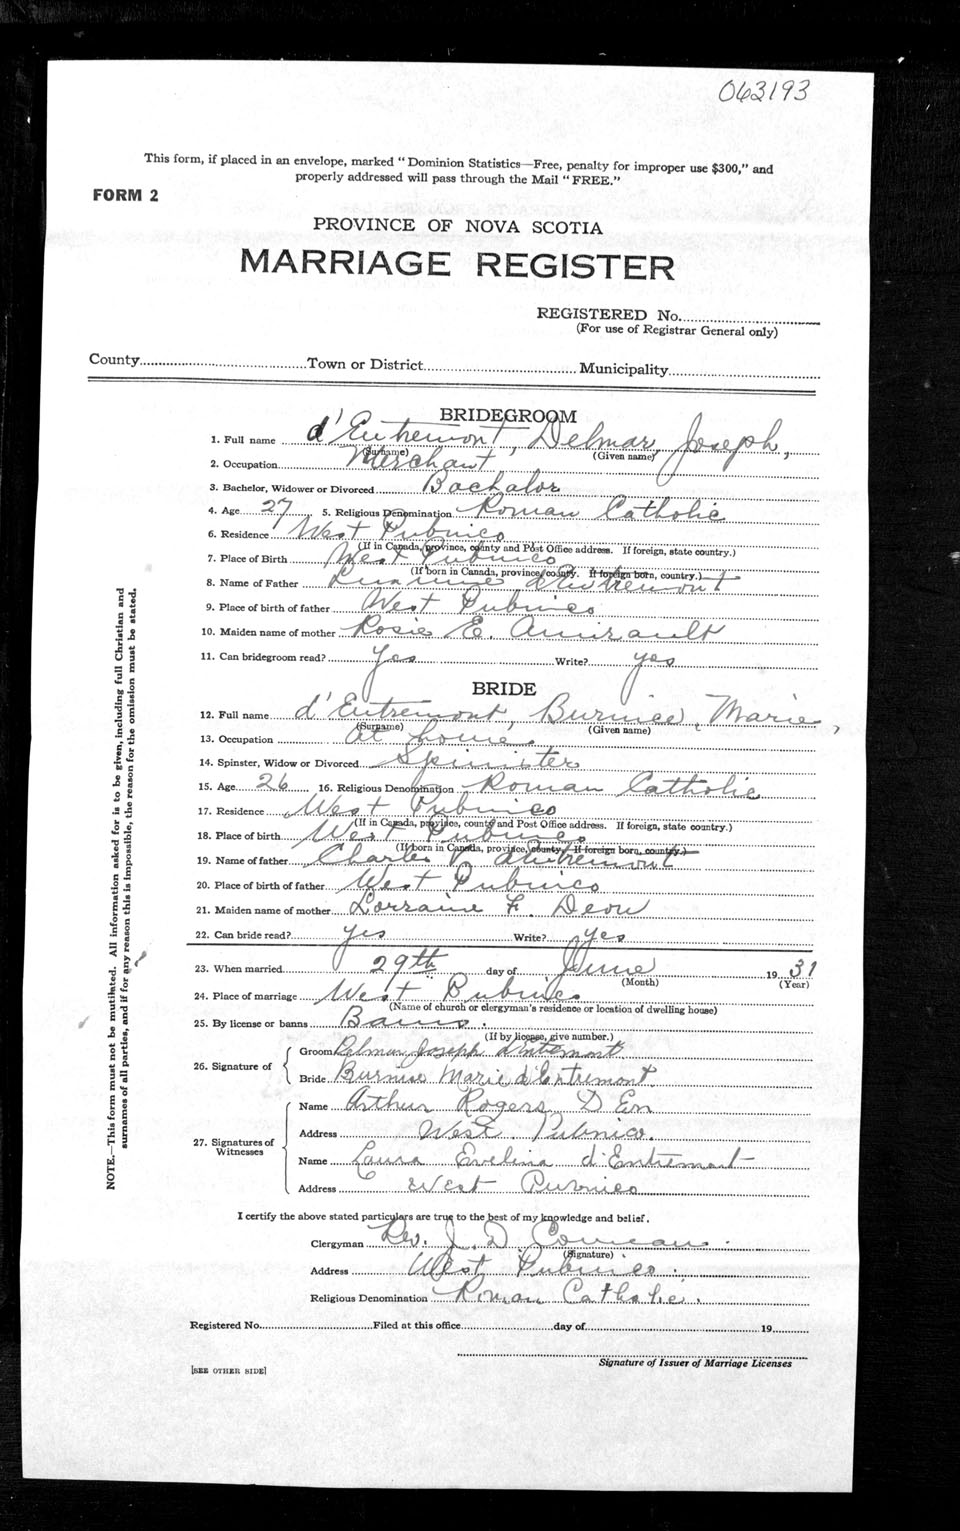 063193
This form, if placed in an envelope, marked "Dominion Statistics—Free, penalty for improper use $300," and
properly addressed will pass through the Mail "FREE."
FORM 2
PROVINCE OF NOVA SCOTIA
MARRIAGE REGISTER
REGISTERED No.
(For use of Registrar General only)
County Town or District Municipality
BRIDEGROOM
1. Full name d'Entremont, Delmar, Joseph,
(Surname) (Given name)
2. Occupation Merchant
3. Bachelor, Widower or Divorced Bachalor
4. Age 27 5. Religious Denomination Roman Catholic
6. Residence West Pubnico
(If in Canada, province, county and Post Office address. If foreign, state country.)
7. Place of Birth West Pubnico
(If born in Canada, province, county. If foreign born, country.)
8. Name of Father d'Entremont
9. Place of birth of father West Pubnico
10. Maiden name of mother Rosie E. Amirault
11. Can bridegroom read? Yes Write? yes
BRIDE
12. Full name d'Entremont, Burnice, Marie,
(Surname) (Given name)
13. Occupation at home
14. Spinster, Widow or Divorced Spinister
15. Age 26 16. Religious Denomination Roman Catholic
17. Residence West Pubnico
(If in Canada, province, county and Post Office address. If foreign, state country.)
18. Place of birth West Pubnico
(If born in Canada, province, county. If foreign born, country.)
19. Name of father Charles d'Entremont
20. Place of birth of father West Pubnico
21. Maiden name of mother Lorraine F. Deon
22. Can bride read? yes Write? yes
23. When married 29th day of June 1931
(Month) (Year)
24. Place of marriage West Pubnico
(Name of church or clergyman's residence or location of dwelling house)
25. By license or banns Banns.
(If by license, give number.)
26. Signature of
Groom Delmar Joseph d'Entremont
Bride Burnice Marie d'Entremont
27. Signatures of Witnesses
Name Arthur Rogers D En
Address West Pubnico.
Name Laura Evelina d'Entremont
Address West Pubnico
I certify the above stated particulars are true to the best of my knowledge and belief.
Clergyman Rev. J. D. Comeau.
(Signature)
Address West Pubnico.
Religious Denomination Roman Catholic.
Registered No. Filed at this office day of 19
Signature of Issuer of Marriage Licenses
[SEE OTHER SIDE]
NOTE.—This form must not be mutilated. All information asked for is to be given, including full Christian and
surnames of all parties, and if for any reason this is impossible, the reason for the omission must be stated.